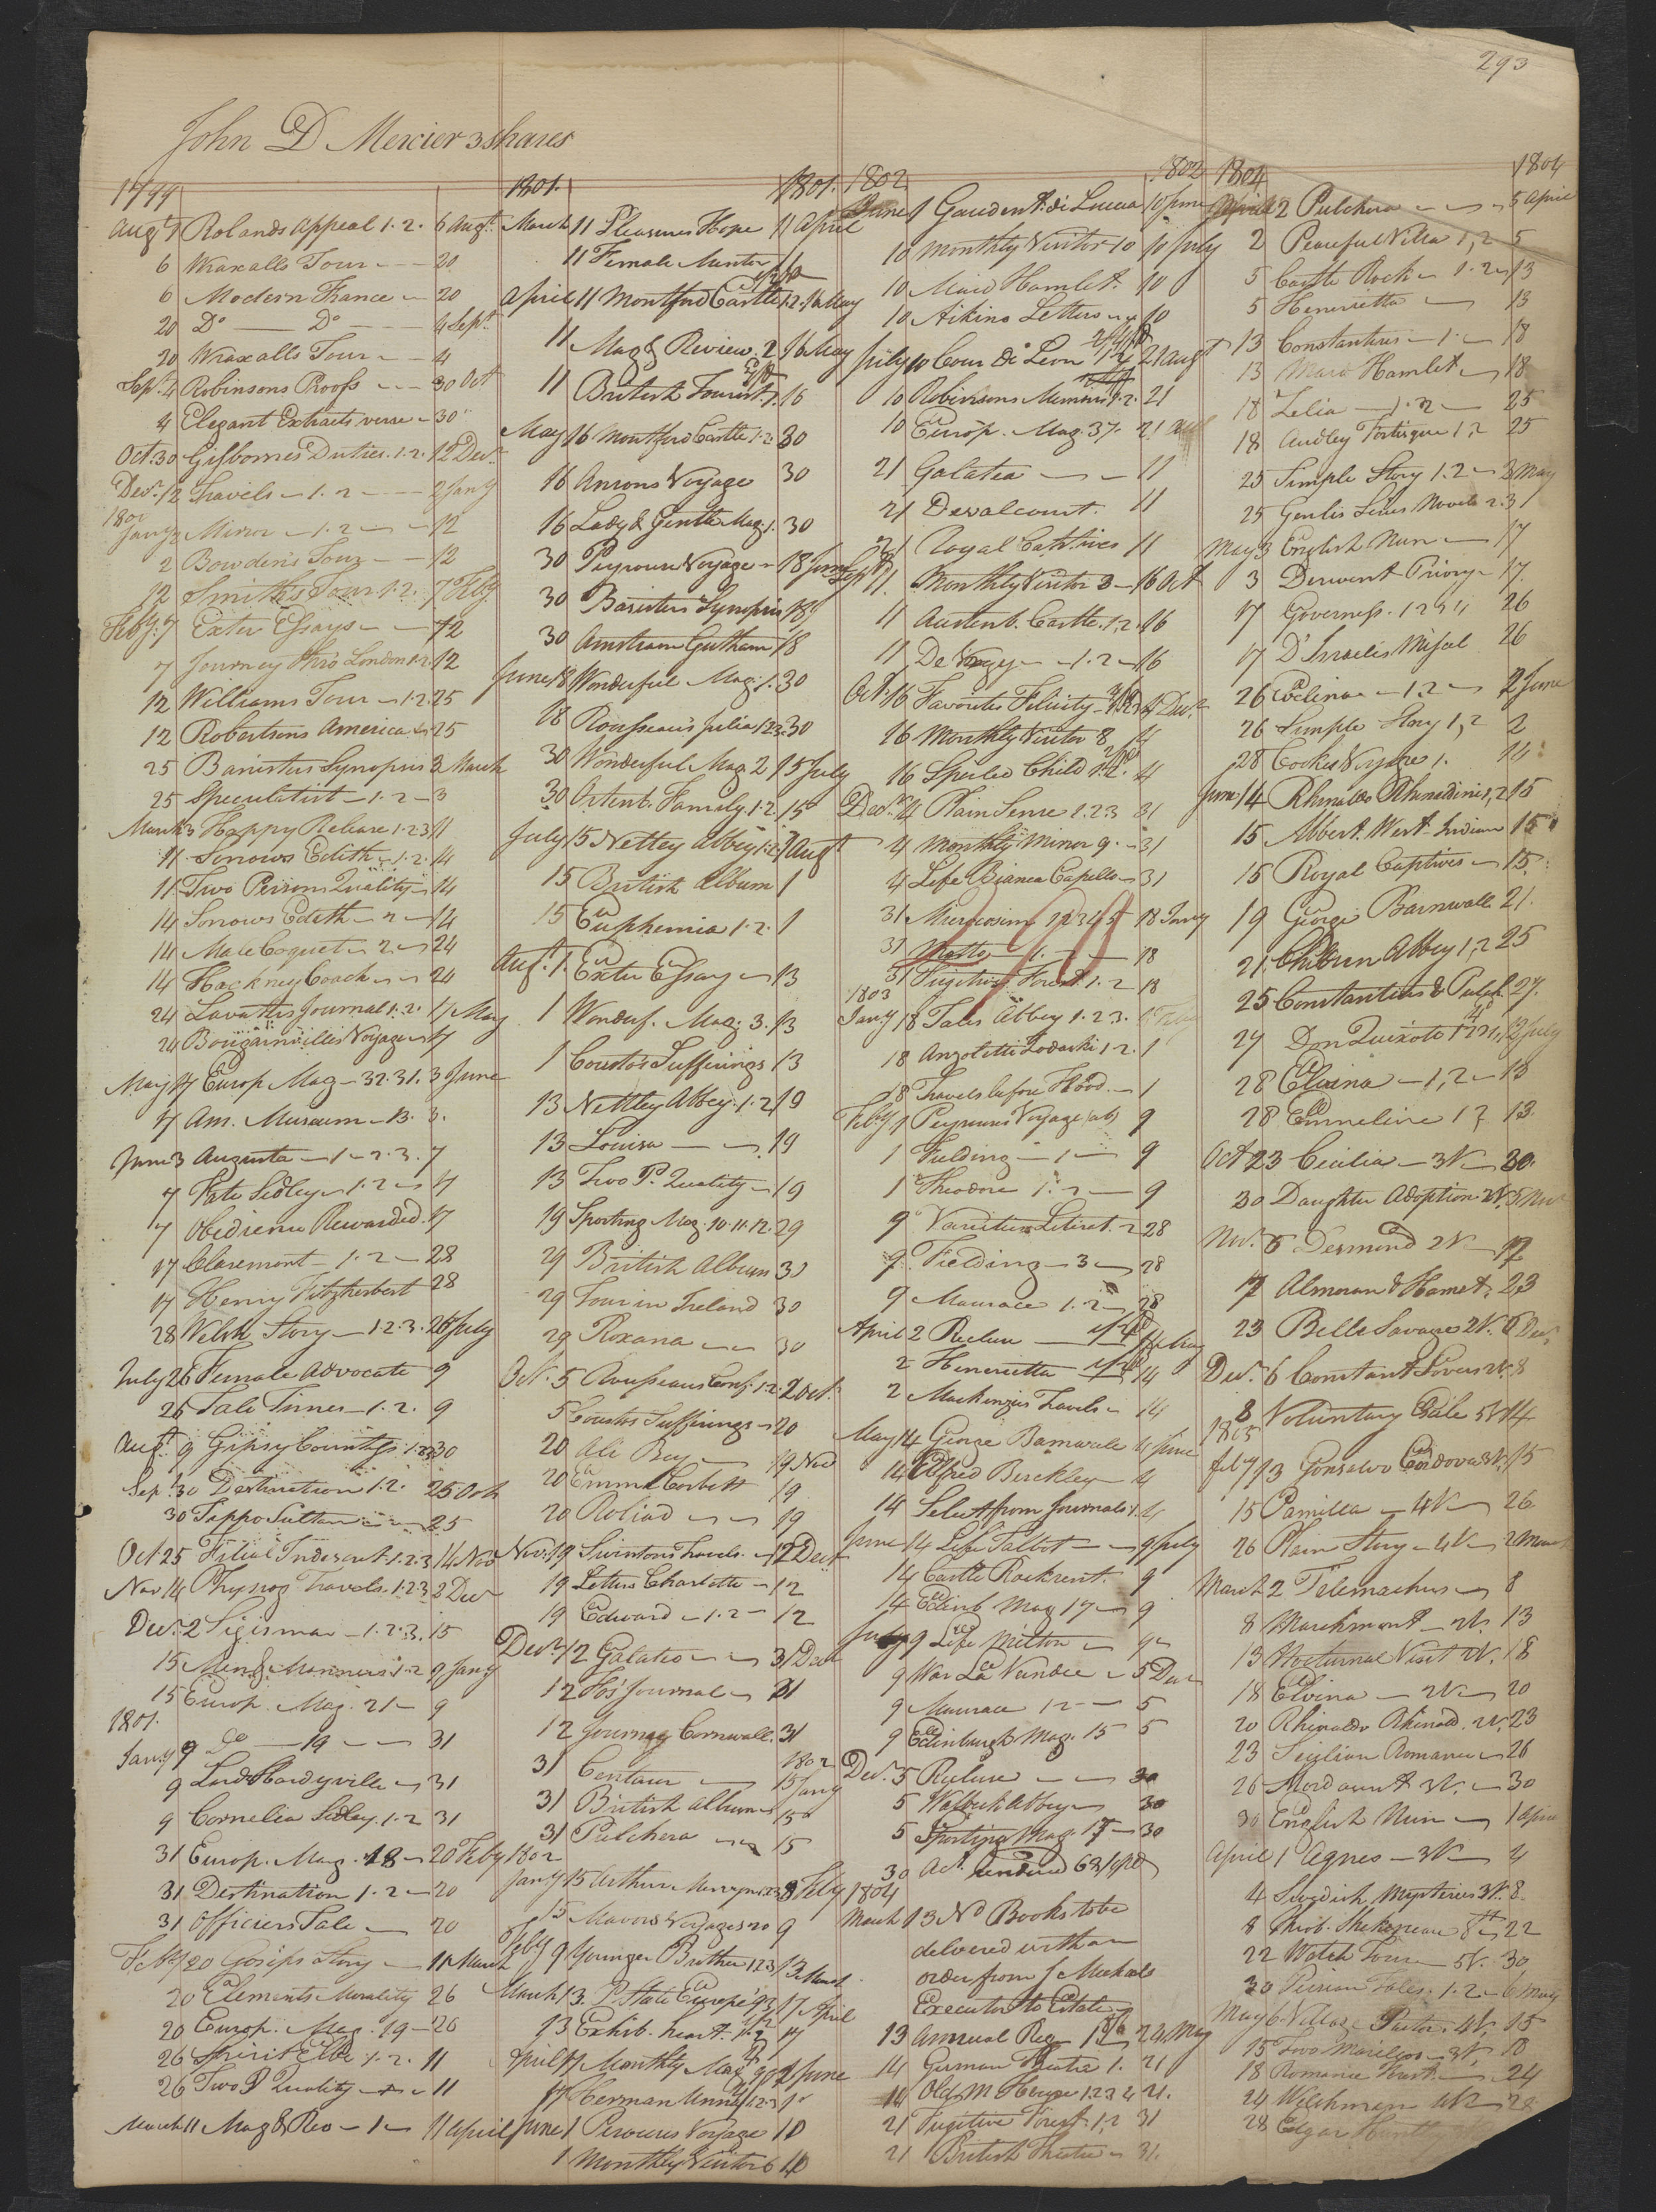 293
John D Mercier 3 shares
1799
Augt 1 Rolands Appeal 1.2. 6 Augt
6 Wraxalls Tour 20
6 Modern France 20
20 Do Do 4 Sept
20 Wraxalls Tour 4
Sept 4 Robinsons Proofs 30 Oct
4 Elegant Extracts verse 30
Oct. 30 Gisbornes Duties. 1.2. 12 Decr
Decr 12 Travels 1.2 2 Jany
1800
Jany 2 Mirror 1.2 12
2 Bowdens Tour 12
12 Smiths Tour 1.2. 7 Feby
Feby. 7 Exter Essays 12
7 Journey thro London 1.2. 12
12 Williams Tour 1.2. 25
12 Robertsons America 25
25 Banisters Synopsis 3 March
25 Speculatist 1.2 3
March 3 Happy Release 1.2.3 11
11 Sorrows Edith 1.2. 14
11 Two Persons Quality 14
14 Sorrows Edith 2 14
14 Male Coquet 2. 24
14 Hackney Coach 24
24 Lavaters Journal 1.2. 17 May
24 Bougainvilles Voyage 17
May 17 Europ Mag 32.31. 3 June
17 Am. Museum 13. 3.
June 3 Augusta 1.2.3. 7
7 Kate Sidley 1.2 17
7 Obedience Rewarded. 17
17 Claremont 1.2 28
17 Henry Fitzherbert 28
28 Welsh Story 1.2.3. 26 July
July 26 Female Advocate 9
26 Tale Times 1.2. 9
Augt 9 Gipsy Countess 1.2.3 30
Sep. 30 Destination 1.2. 25 Oct
30 Tippo Sultan 25
Oct 25 Filial Indiscret. 1.2.3 14 Nov
Nov 14 Physiog Travels. 1.2.3 2 Decr
Decr. 2 Sigismar 1.2.3. 15
15 Men & Manners 1.2 9 Jany
15 Europ. Mag. 21 9
1801.
Jany 9 Do 19 31
9 Lord Hardyville 31
9 Cornelia Sedley. 1.2 31
31 Europ. Mag. 18 20 Feby
31 Destination 1.2 20
31 Officiers Tale 20
Feby 20 Gosips Story 11 March
20 Elements Morality 26
20 Europ. Mag. 19 26
26 Spirit Elbe 1.2. 11
26 Two P Quality 11
March 11 Mag & Rev 1 11 April
1801. 1801.
March 11 Pleasures Hope 11 April
11 Female Mentor 11
April 11 Montford Castle 1.2. 16 May
11 Mag & Review. 2 16 May
11 British Tourist. 1. 16
May 16 Montford Castle 1.2. 30
16 Ansons Voyage 30
16 Lady & Gentle Mag. 1. 30
30 Peyrouse Voyage 18 June
30 Banisters Synopsis 18
30 Armstram Gutham 18
June 18 Wonderful Mag. 1. 30
18 Rousseau's Julia 1.2.3. 30
30 Wonderful Mag 2 15 July
30 Ortenb. Family. 1.2. 15
July 15 Nettley Abbey 1.2. 1 Augt
15 British Album 1
15 Euphemia 1.2. 1
Augt. 1. Exeter Essay 13
1 Wonderf. Mag. 3. 13
1 Coustos Sufferings 13
13 Nettley Abbey. 1.2 19
13 Louisa 19
13 Two P. Quality 19
19 Sporting Mag. 10.11.12. 29
29 British Album 30
29 Tour in Ireland 30
29 Roxana 30
Oct. 5 Rousseaus Conf. 1.2. 20 Oct.
5 Coustos Sufferings 20
20 Ali Bey 19 Nov
20 Emma Corbett 19
20 Roliad 19
Nov. 19 Swintons Travels. 12 Decr
19 Letters Charlotte 12
19 Edward 1.2 12
Decr. 12 Galatea 31 Decr
12 Hos' Journal 31
12 Journey Cornwall. 31
1802
31 Centaur 15 Jany
31 British Album 15
31 Pulchera 15
1802
Jany 15 Arthur Mervyn 1.2.3 9 Feby
15 Mavors Voyages 20 9
Feby 9 Younger Brother 1.2.3 13 March
March 13. P. State Europe 93 17 April
13 Exhib. heart. 1.2 17
April 17 Monthly Mag 9.10 1 June
17 Herman Unna 1.2.3 1
June 1 Perouses Voyage 10
1 Monthly Visitor 6 10
1802 1802
June 1 Gaudent. di Lucca 10 June
10 Monthly Visitor 10 10 July
10 Maid Hamlet. 10
10 Aikins Letters 10
July 10 Cour di Leon 1.2 21 Augt
10 Robinsons Memoirs 1.2. 21
10 Europ. Mag 37. 21
21 Galatea 11
21 Devalcourt. 11
21 Royal Captives 11
Sept 11. Monthly Visitor 3 16 Oct
11 Austenb. Castle. 1.2. 16
11 De Voyey 1.2 16
Oct. 16 Favorites Felicity 4 Decr.
16 Monthly Visitor 8 4
16 Spoiled Child 1.2. 4
Decr. 4 Plain Sense 1.2.3 31
4 Monthly Mirror 9. 31
4 Life Bianca Capello 31
31 Microcosim 1.2.3.4.5 18 Jany
31 Matto 1. 18
31 Fugitive Forest. 1.2 18
1803
Jany 18 Tales Abbey 1.2.3. 1 Feby
18 Anzoletti Zodaski 1.2. 1
18 Travels before Flood. 1
Feby 1 Peyrouses Voyage abs 9
1 Fielding 1 9
1 Theodore 1.2 9
9 Varieties Literat. 2 28
9. Fielding 3 28
9 Maurace 1.2 28
April 2 Recluse 14 May
2 Henrietta 14
2 Mackenzies Travels 14
May 14 George Barnwele 14 June
14 Alfred Berckley 14
14 Select from Journals. 1. 14
June 14 Life Talbot 9 July
14 Castle Rackrent. 9
14 Edinb Mag 17 9
July 9 Life Milton 9
9 War La Vendee 5 Decr
9 Maurace 1.2 5
9 Edinburgh Mag. 15 5
Dec. 5 Recluse 30
5 Walbeck Abbey 30
5 Sporting Mag. 17 30
30 Act. rendered
1804
March 13 No Books to be
delivered with an
order from J Meekaels
Executor to Estate
13 Annual Reg 21 May
14 German Theatre 1. 21
14 Old M House 1.2.3.4 21.
21 Fugitive Forest 1.2 31
21 British Theatre 31.
1804 1804
April 2 Pulchera 5 April
2 Peaceful Villa 1,2 5
5 Castle Rock 1.2 13
5 Henrietta 13
13 Constantius 1. 18
13 Maid Hamlet 18
18 Zelia 1.2 25
18 Audley Fortesque 1,2 25
25 Simple Story 1.2 3 May
25 Genlis Lewis Novels 2. 3
May 3 English Nun 17
3 Derwent Priory 17.
17 Governess. 1 2 3 4 26
17 D'Israelis Misfal 26
26 Coelina 1.2 2 June
26 Simple Story 1,2 2
28 Cookes Voyage 1. 14
June 14 Rhinaldo Rhinaldini 1,2 15
15 Albert. West Indian 15
15 Royal Captives 15
19 George Barnwell 21.
21. Children Abbey 1,2 25
25 Constantius & Pulch. 27.
27 Don Quixote 13 July
28 Elvina 1,2 13
28 Emmeline 1,2 13.
Oct 23 Cecilia 3V 30.
30 Daughter Adoption 2V. 5 Nov
Nov. 5 Desmond 2V 17
17 Almoran & Hamet. 23
23 Belle Savage 2V. 6 Decr
Decr. 6 Constant Lovers 2V. 8
8 Voluntary Exile 5V 14
1805
Feby 13 Gonsalvo Cordova 3V. 15
15 Pamilla 4V 26
26 Plain Story 4V 2 March
March 2 Telemachus 8
8 Marchmont 2V. 13
13 Nocturnal Visit 2V. 18
18 Elvina 2V 20
20 Rhinaldo Rhinald. 2V. 23
23 Sicylian Romance 26
26 Mordaunt 3V. 30
30 English Nun 1 April
April 1 Agnes 3V 4
4 Swedish Mysteries 3V. 8
8 Theob. Shakspeare 8th 22
22 Watch Tower 5V. 30
30 Persian Tales. 1.2 6 May
May 6 Village Pastor. 4V. 15
15 Two Marillos 3V. 18
18 Romance Forest 24
24 Welchman 4V 28
28 Edgar Huntly